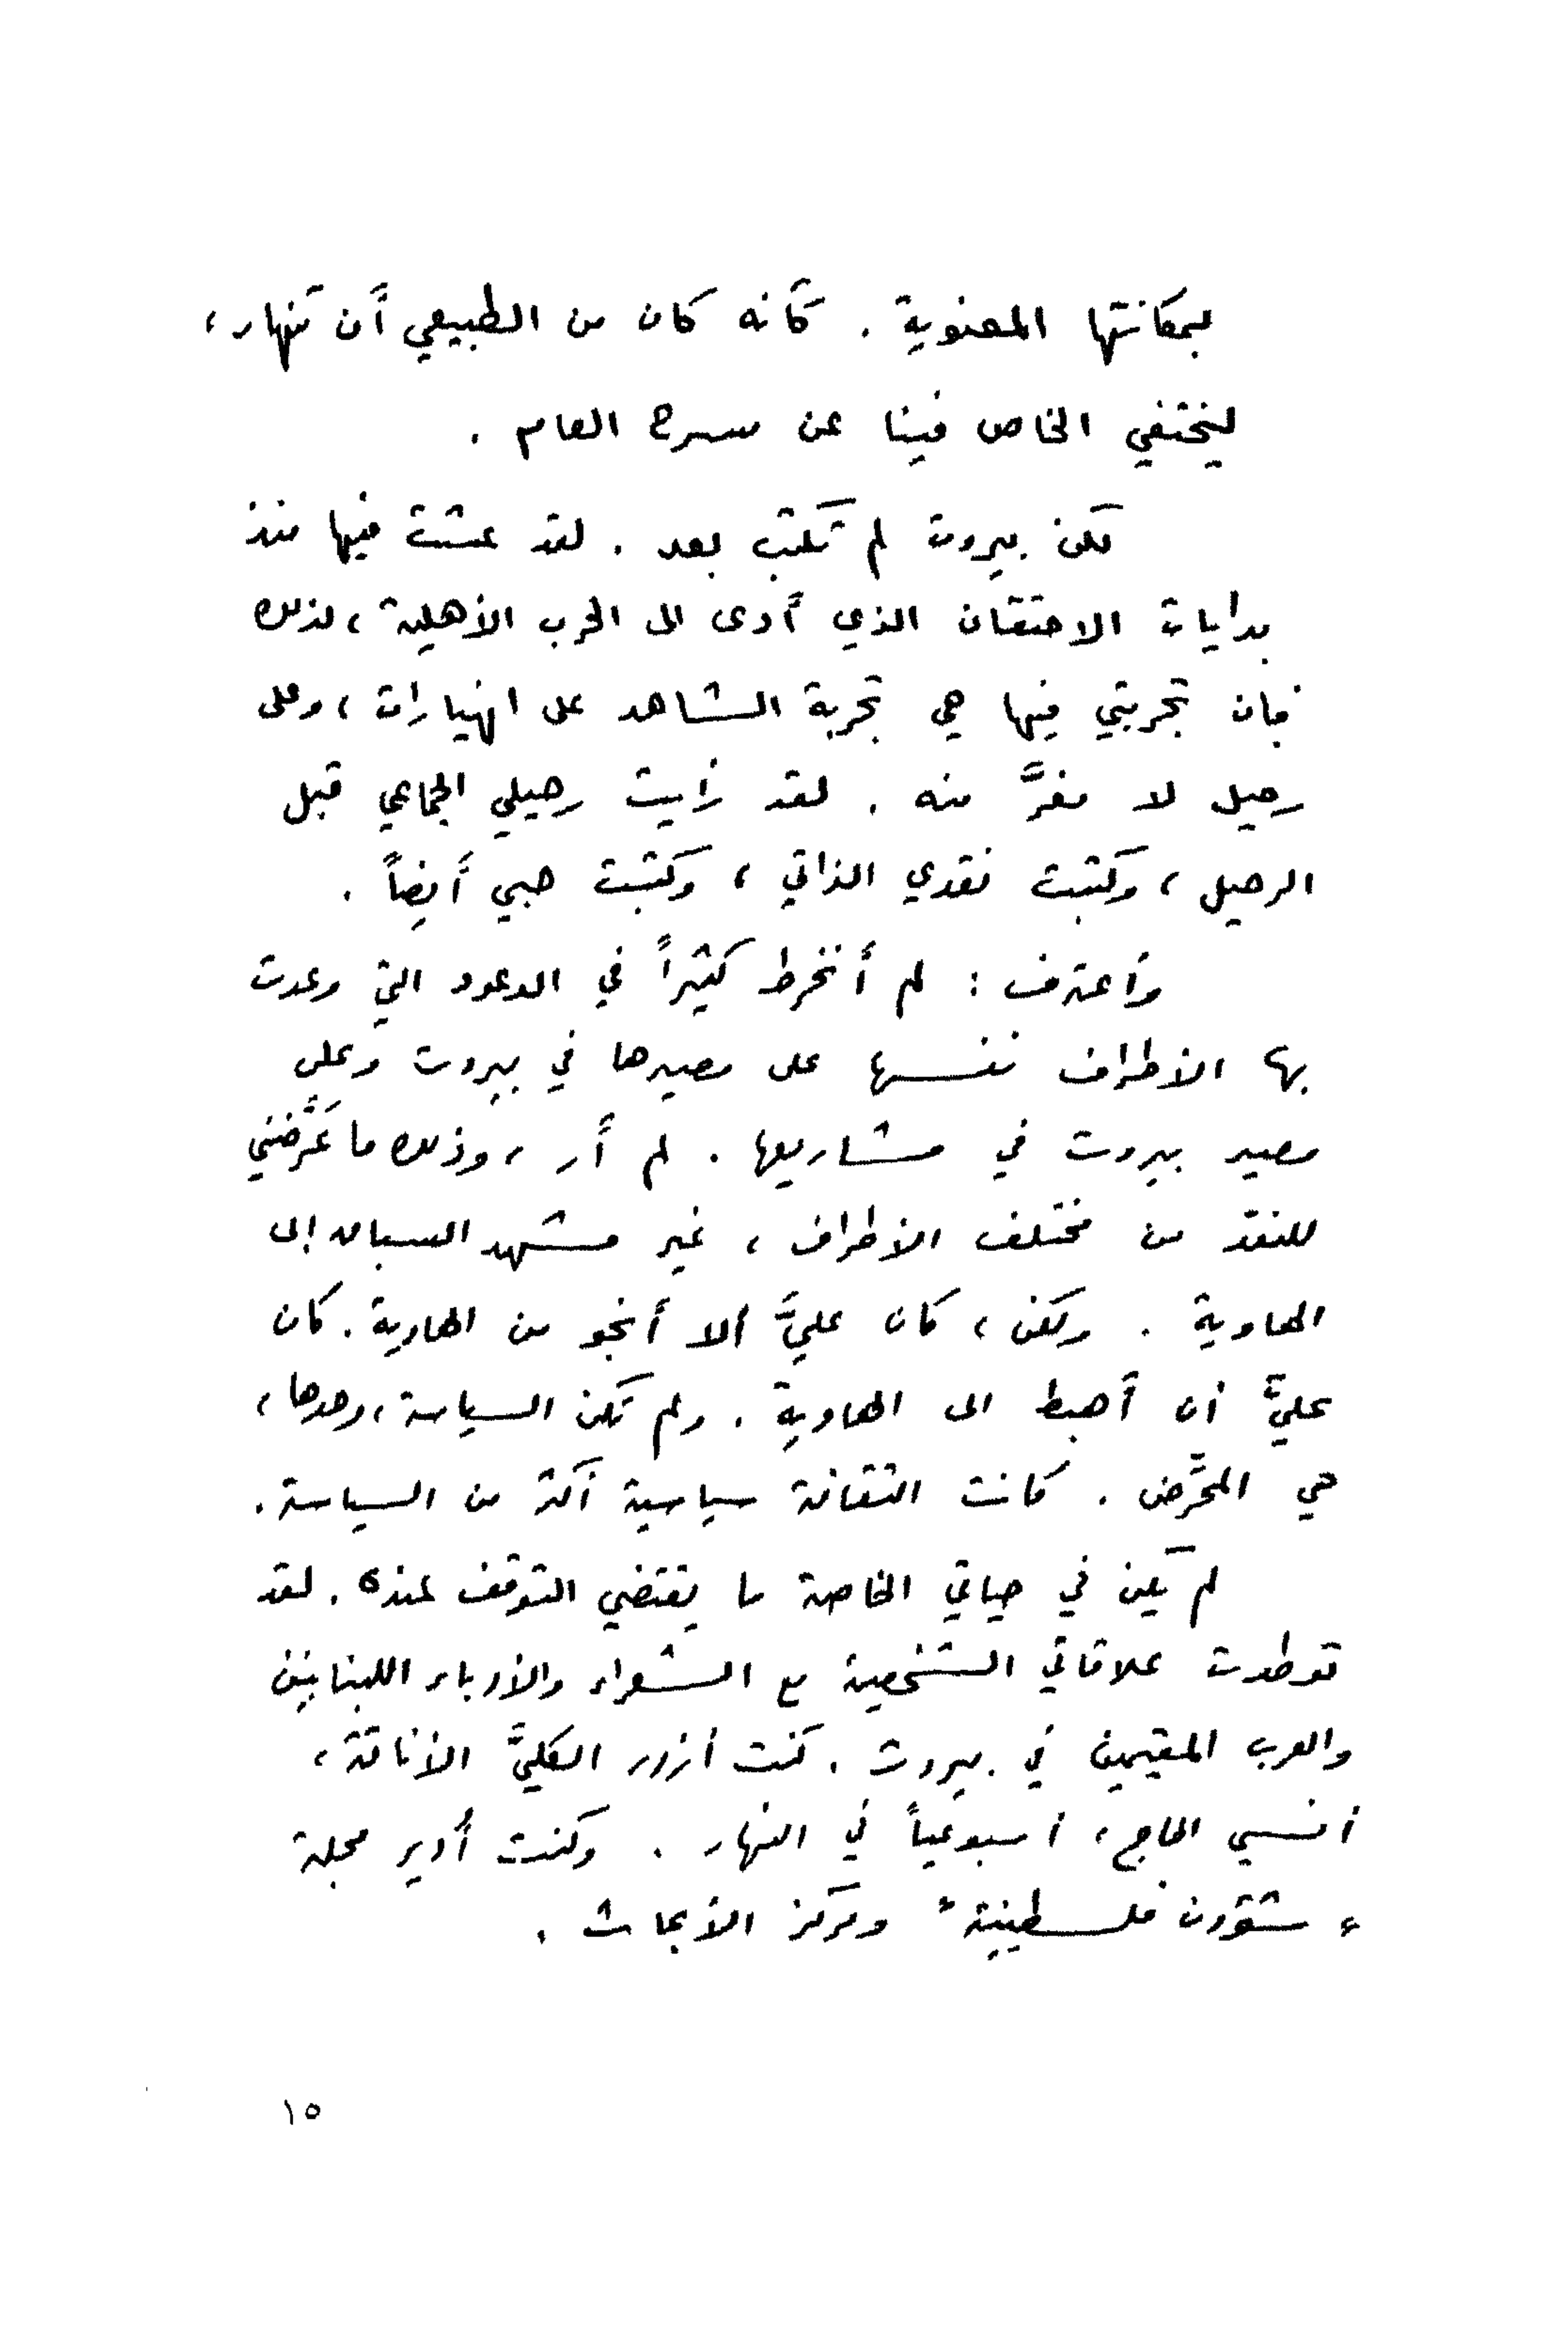 بمكانتها المعنوية . كأنه كان من الطبيعي أن تنهار ،
ليختفي الخاص فينا عن مسرح العام .
لكن بيروت لم تكتب بعد . لقد عشت فيها منذ
بدايات الاحتقان الذي أدى الى الحرب الأهلية ، لذلك
فان تجربتي فيها هي تجربة الشاهد على انهيارات ، وعلى
رحيل لا مفرَّ منه . لقد رأيت رحيلي الجماعي قبل
الرحيل ، وكتبت نقدي الذاتي ، وكتبت حبي أيضاً .
وأعترف : لم أنخرط كثيراً في الوعود التي وعدت
بها الأطراف نفسها على مصيرها في بيروت وعلى
مصير بيروت في مشاريعها . لم أر ، وذلك ما عَرَّضني
للنقد من مختلف الأطراف ، غير مشهد السباق إلى
الهاوية . ولكن ، كان عليَّ ألا أنجو من الهاوية . كان
عليَّ أن أهبط الى الهاوية . ولم تكن السياسة ، وحدها ،
هي المحرَّض . كانت الثقافة سياسية أكثر من السياسة .
لم يكن في حياتي الخاصة ما يقتضي التوقف عنده . لقد
توطدت علاقاتي الشخصية مع الشعراء والأدباء اللبنانيين
والعرب المقيمين في بيروت . كنت أزور الكليَّ الأناقة ،
أنسي الحاج ، أسبوعياً في النهار . وكنت أُدير مجلة
" شؤون فلسطينية " ومركز الأبحاث .
١٥